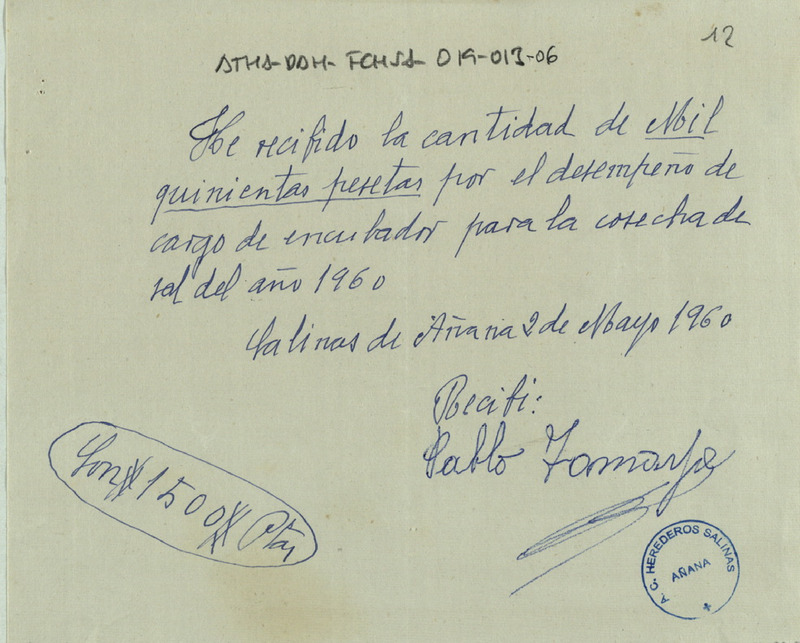 12
ATHA-DAH-FCHSA-019-013-06
He recibido la cantidad de Mil
quinientas pesetas por el desempeño de
cargo de encubador para la cosecha de
sal del año 1960
Salinas de Añana 2 de Mayo 1960
Recibi:
Pablo
Son # 1500 # Ptas
A.C. HEREDEROS SALINAS
AÑANA